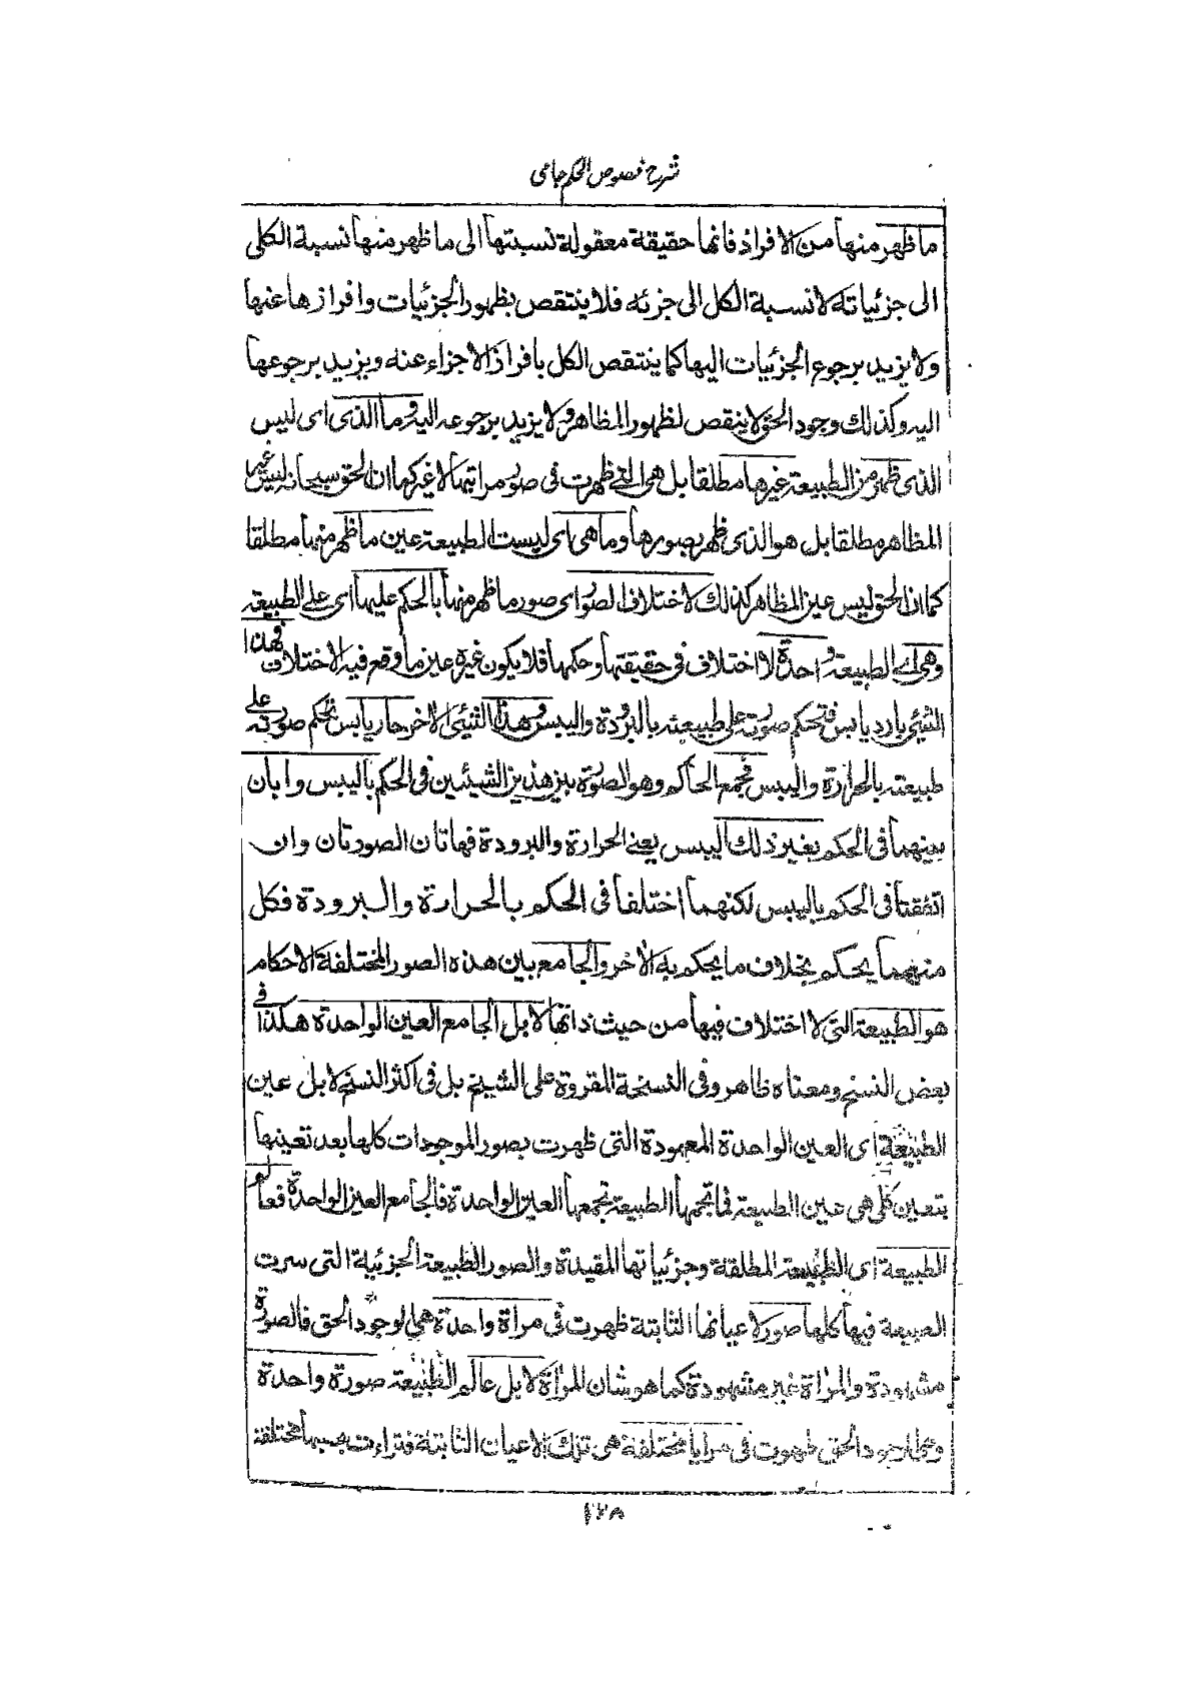 شرح فصوص الحكم جامى
ما ظهر منها من الافراد فانها حقيقة معقولة نسبتها الى ما ظهر منها نسبة الكلى
الى جزئياته لا نسبة الكل الى جزئه فلا ينتقص بظهور الجزئيات وافرازها عنها
ولا يزيد برجوع الجزئيات اليها كما ينتقص الكل بافراز الاجزاء عنه ويزيد برجوعها
اليه وكذلك وجود الحق لا ينقص لظهور المظاهر ولا يزيد برجوعه اليه وما الذى اى ليس
الذى ظهر من الطبيعة غيرها مطلقا بل هى التى ظهرت فى صور مراتبها لا غير كما ان الحق سبحانه ليس غير
المظاهر مطلقا بل هو الذى ظهر بصورها وما هى اى ليست الطبيعة عين ما ظهر منها مطلقا
كما ان الحق ليس عين المظاهر كذلك لاختلاف الصور اى صور ما ظهر منها بالحكم عليها اى على الطبيعة
وهى اى الطبيعة واحدة لا اختلاف فى حقيقتها وحكمها فلا يكون غيره عين ما وقع فيه الاختلاف فهذا
الشئ بارد يابس فتحكم صورته على طبيعته بالبرودة واليبس وهذا الشئ الاخر حار يابس تحكم صورته على
طبيعته بالحرارة واليبس فجمع الحاكم وهو الصورة بين هذين الشيئين فى الحكم باليبس وابان
بينهما فى الحكم بغير ذلك اليبس يعنى الحرارة والبرودة فهاتان الصورتان وان
اتفقتا فى الحكم باليبس لكنهما اختلفا فى الحكم بالحرارة والبرودة فكل
منهما يحكم بخلاف ما يحكم به الاخر والجامع بين هذه الصور المختلفة الاحكام
هو الطبيعة التى لا اختلاف فيها من حيث ذاتها لا بل الجامع العين الواحدة هكذا فى
بعض النسخ ومعناه ظاهر وفى النسخة المقروة على الشيخ بل فى اكثر النسخ لا بل عين
الطبيعة اى العين الواحدة المعهودة التى ظهرت بصور الموجودات كلها بعد تعينها
بتعين كلى هى عين الطبيعة فما تجمها الطبيعة تجمعها العين الواحدة فالجامع العين الواحدة فعالم
الطبيعة اى الطبيعة المطلقة وجزئياتها المقيدة والصور الطبيعة الجزئية التى سرت
الطبيعة فيها كلها صور لاعيانها الثابتة ظهرت فى مراة واحدة هى الوجود الحق فالصورة
مشهودة والمراة غير مشهودة كما هو شان المراة لا بل عالم الطبيعة صورة واحدة
الحق ظهرت فى مرايا مختلفة هى تلك الاعيان الثابتة فتراءت بحسبها مختلفة
١٢٨